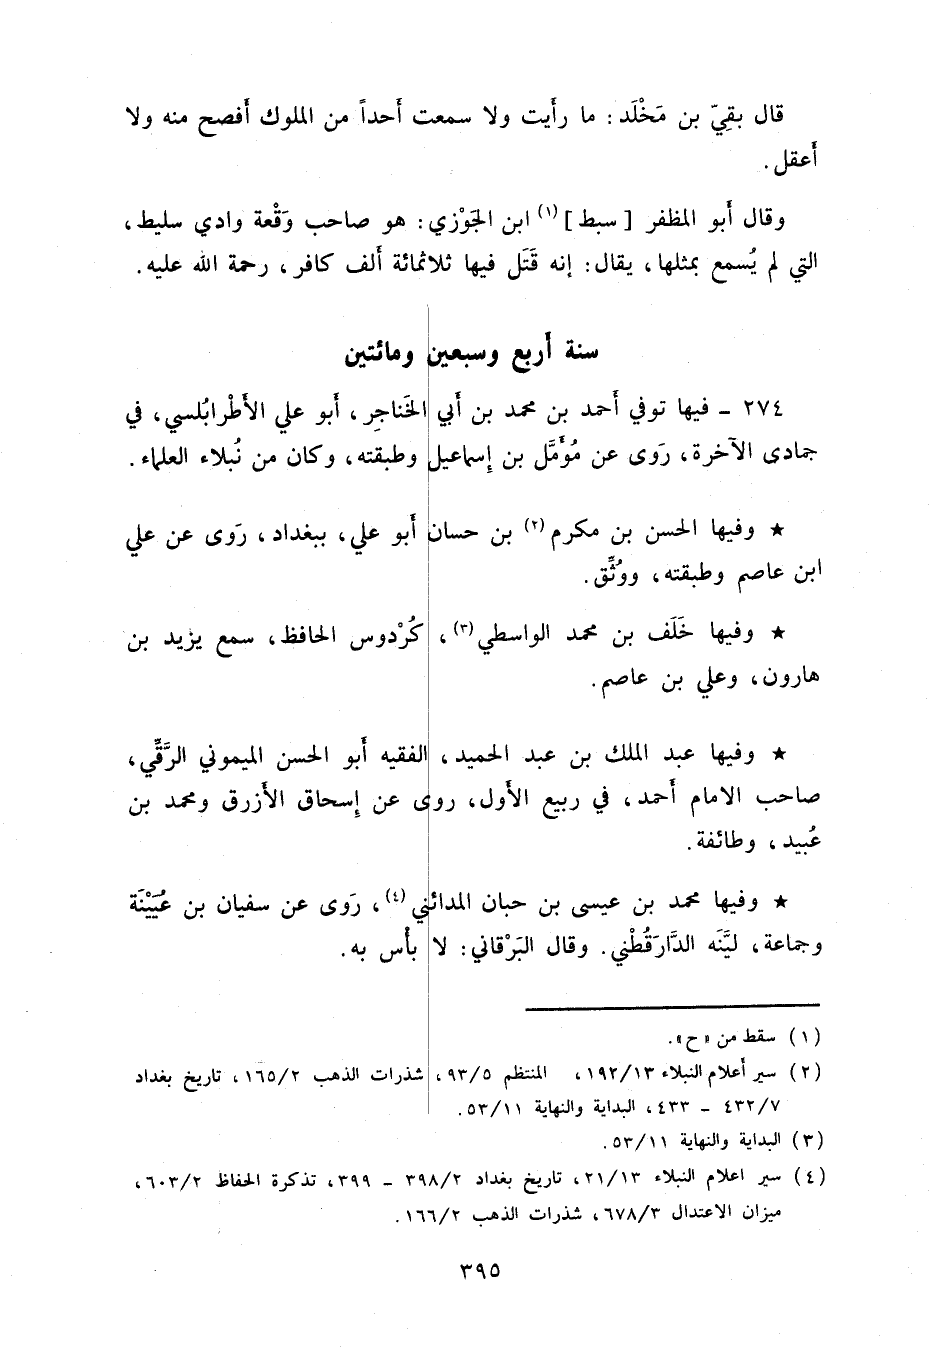 قال بقِيّ بن مَخْلَد : ما رأَيت ولا سمعت أَحداً من الملوك أَفصح منه ولا
أَعقل .
وقال أَبو المظفر [ سبط ] (١) ابن الجَوْزي : هو صاحب وَقْعة وادي سليط ،
التي لم يُسمع بمثلها ، يقال : إنه قَتَل فيها ثلاثمائة أَلف كافر ، رحمة الله عليه .
سنة أَربع وسبعين ومائتين
٢٧٤ ـ فيها توفي أَحمد بن محمد بن أَبي الخَناجِر ، أَبو علي الأَطْرابُلسي ، في
جمادى الآخرة ، رَوى عن مُؤَمَّل بن إِسماعيل وطبقته ، وكان من نُبلاء العلماء .
★ وفيها الحسن بن مكرم (٢) بن حسان أَبو علي ، ببغداد ، رَوى عن علي
ابن عاصم وطبقته ، ووُثِّق .
★ وفيها خَلَف بن محمد الواسطي (٣) ، كُرْدوس الحافظ ، سمع يزيد بن
هارون ، وعلي بن عاصم .
★ وفيها عبد الملك بن عبد الحميد ، الفقيه أَبو الحسن الميموني الرَّقِّي ،
صاحب الامام أَحمد ، في ربيع الأَول ، روى عن إِسحاق الأَزرق ومحمد بن
عُبيد ، وطائفة .
★ وفيها محمد بن عيسى بن حبان المدائني (٤) ، رَوى عن سفيان بن عُيَيْنَة
وجماعة ، ليَّنَه الدَّارَقُطْني . وقال البَرْقاني : لا بأْس به .
(١) سقط من « ح » .
(٢) سير أعلام النبلاء ١٩٢/١٣ ، المنتظم ٩٣/٥ ، شذرات الذهب ١٦٥/٢ ، تاريخ بغداد
٤٣٢/٧ ـ ٤٣٣ ، البداية والنهاية ٥٣/١١ .
(٣) البداية والنهاية ٥٣/١١ .
(٤) سير اعلام النبلاء ٢١/١٣ ، تاريخ بغداد ٣٩٨/٢ ـ ٣٩٩ ، تذكرة الحفاظ ٦٠٣/٢ ،
ميزان الاعتدال ٦٧٨/٣ ، شذرات الذهب ١٦٦/٢ .
٣٩٥